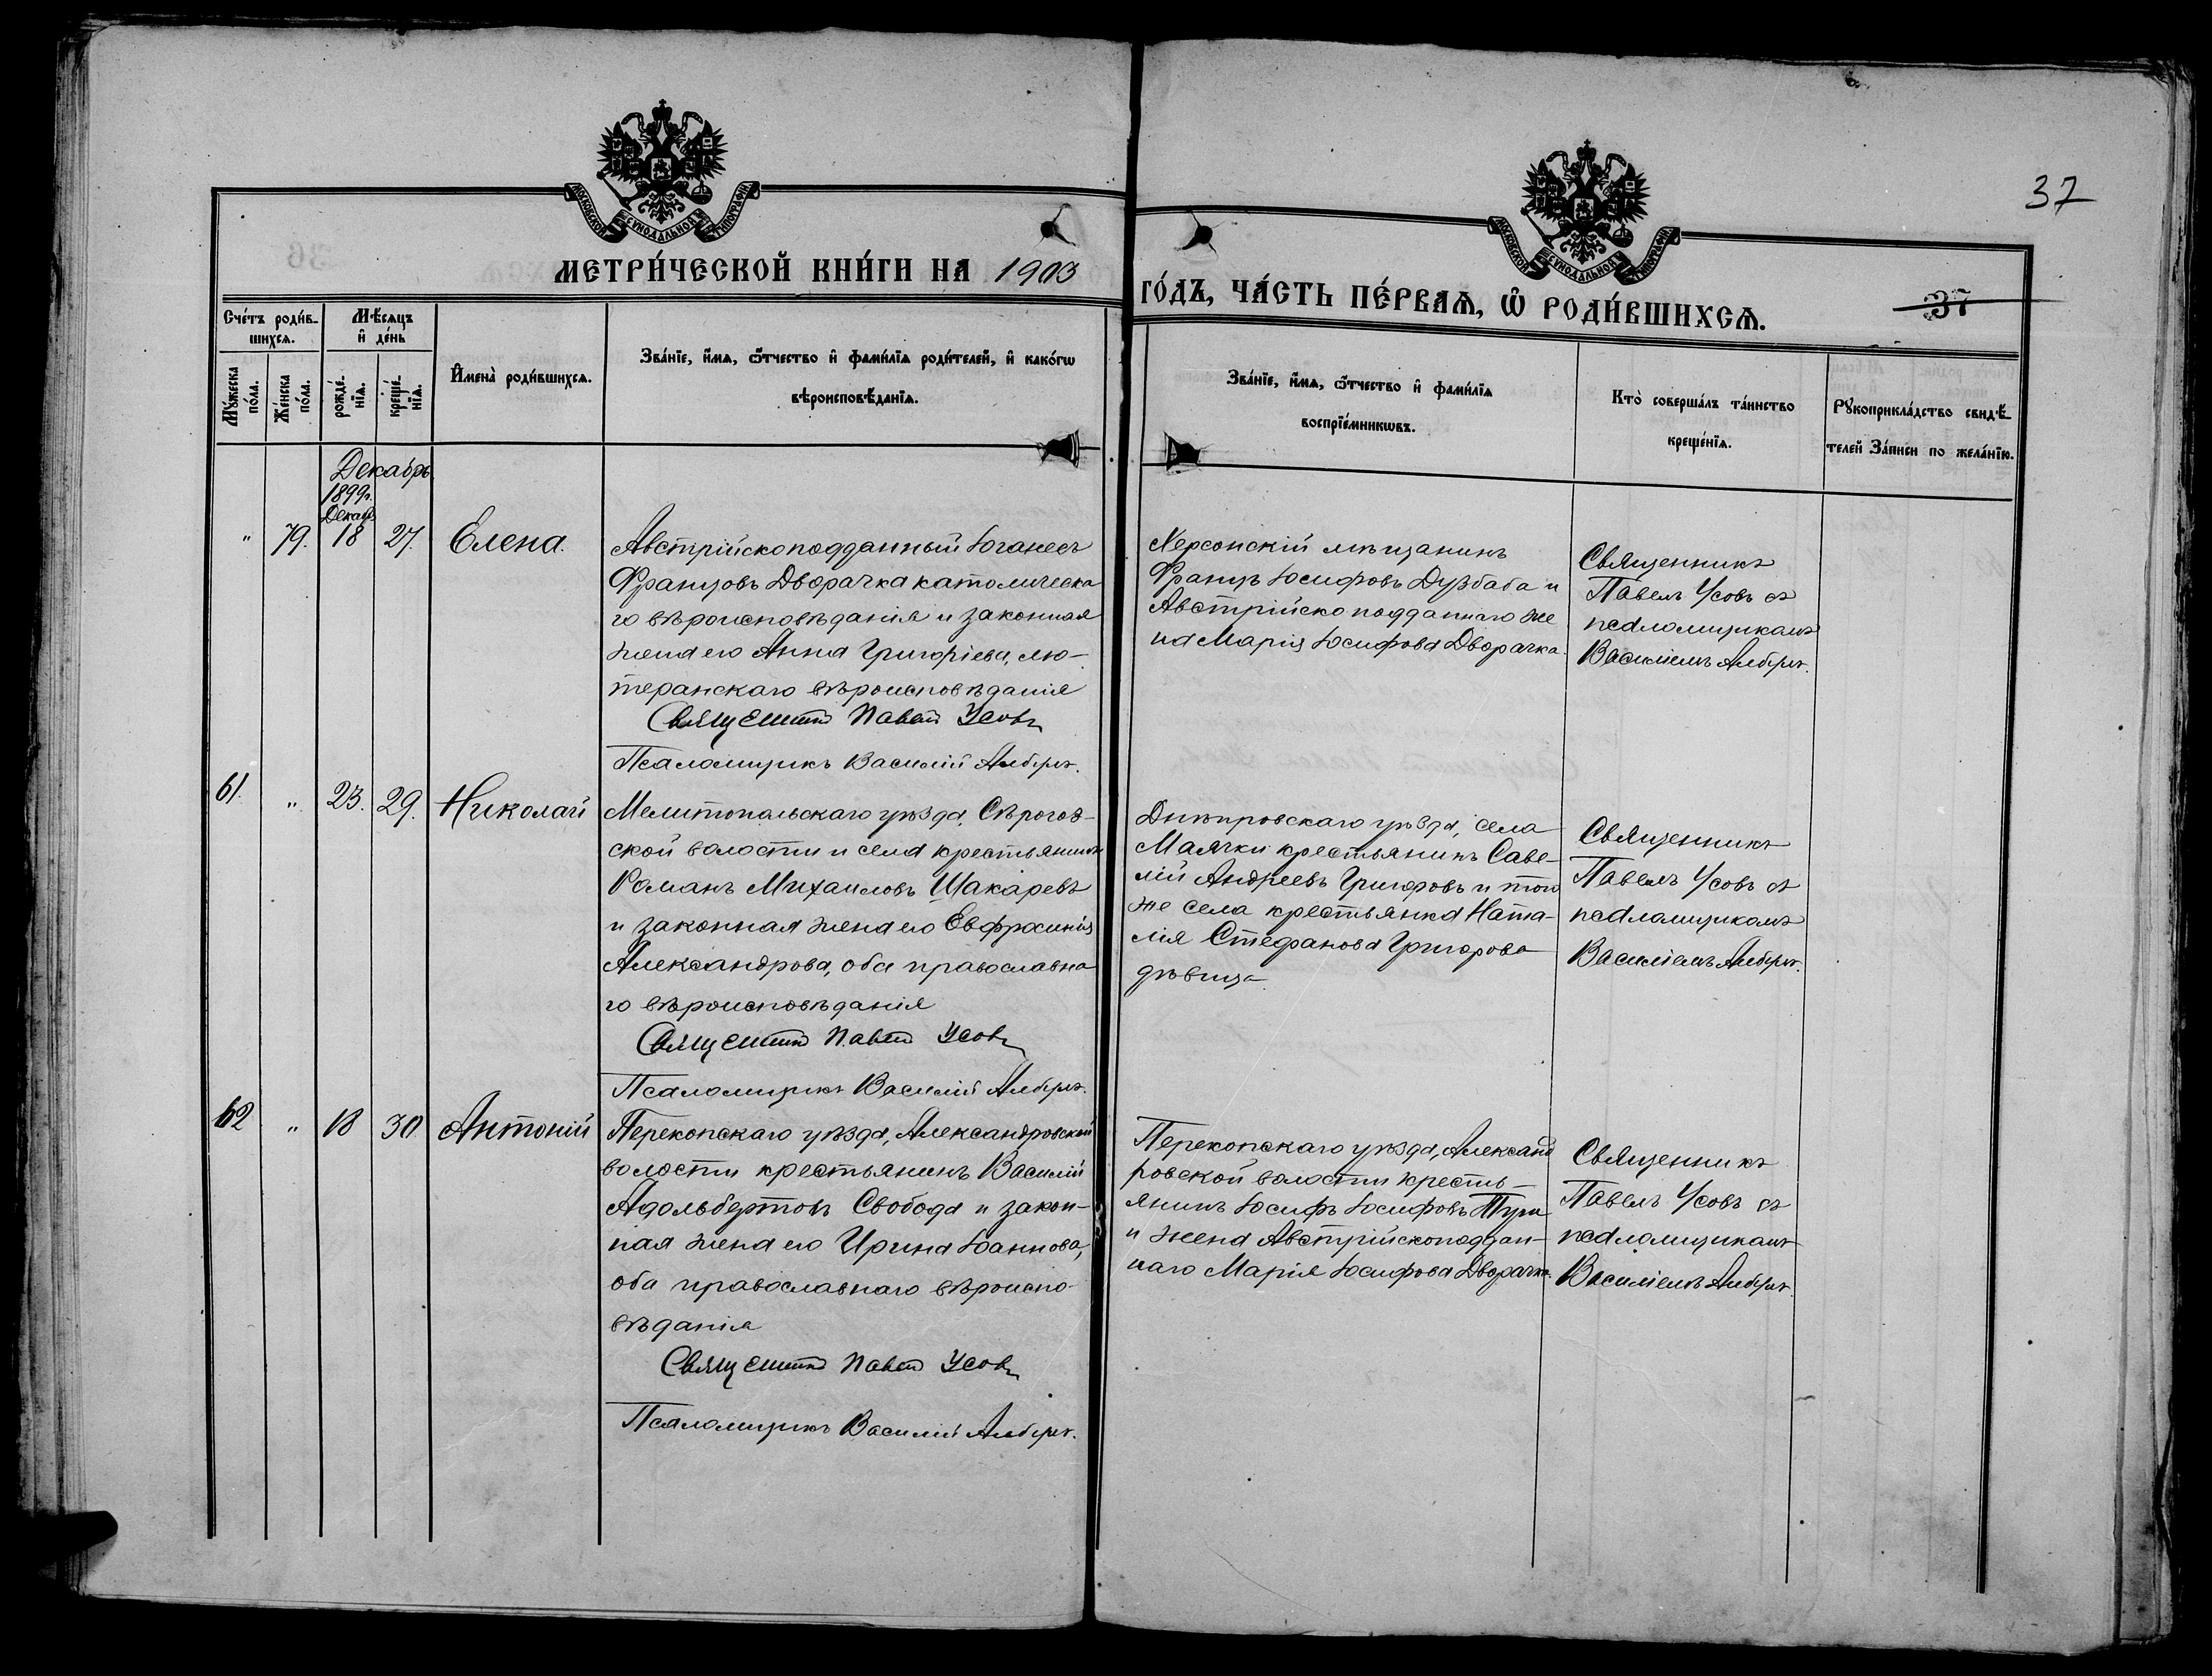 37
МОСКОВСКОЙ СУНОДАЛЬНОЙ ТИПОГРАФІИ
МОСКОВСКОЙ СУНОДАЛЬНОЙ ТИПОГРАФІИ
МЕТРИ́ЧЕСКОЙ КНИ́ГИ НА 1903
ГО́ДЪ, ЧА́СТЬ ПЕ́РВАѦ, Ѡ҆ РОДИ́ВШИХСѦ.
37
Сче́тъ роди́в-
шихсѧ.
Мѣ́сѧцъ
и҆ де́нь
Мꙋ́жеска
по́ла.
Же́нска
по́ла.
рожде́-
нїѧ.
креще́-
нїѧ.
И҆мена̀ роди́вшихсѧ.
Зва́нїе, и҆́мѧ, ѻ҆́тчество и҆ фами́лїѧ роди́телей, и҆ како́гѡ
вѣроисповѣ́данїѧ.
Зва́нїе, и҆́мѧ, ѻ҆́тчество и҆ фами́лїѧ
воспрїе́мникѡвъ.
Кто̀ соверша́лъ та́инство
креще́нїѧ.
Рꙋкоприкла́дство свидѣ́-
телей За́писи по жела́нїю.
Декабрь
1899г.
Декабр
" 79. 18 27. Елена.
Австрійскоподданный Іоганесъ
Францовъ Дворачка католическа
го вѣроисповѣданія и законная
жена его Анна Григоріева, лю-
теранскаго вѣроисповѣданія
Священникъ Павелъ Усовъ
Псаломщикъ Василій Алберт.
Херсонскій мѣщанинъ
Францъ Іосифовъ Дузбаба и
Австрійско подданнаго же
на Марія Іосифова Дворачка
Священникъ
Павелъ Усовъ съ
псаломщикомъ
Василіемъ Алберт.
61. " 23. 29. Николай
Мелитопольскаго уѣзда, Сѣрогоз-
ской волости и села крестьянинъ
Романъ Михаиловъ Шакаревъ
и законная жена его Евфросинія
Александрова, оба православна
го вѣроисповѣданія
Священникъ Павелъ Усовъ
Псаломщикъ Василій Алберт.
Днѣпровскаго уѣзда, села
Маячки крестьянинъ Саве-
лій Андреевъ Григоровъ и того
же села крестьянка Ната-
лія Стефанова Григорова
дѣвица
Священникъ
Павелъ Усовъ съ
псаломщикомъ
Василіемъ Алберт.
62 " 18 30 Антоній
Перекопскаго уѣзда, Александровской
волости крестьянинъ Василій
Адольбертовъ Свобода и закон-
ная жена его Ирина Іоаннова,
оба православнаго вѣроиспо-
вѣданія
Священникъ Павелъ Усовъ
Псаломщикъ Василій Алберт.
Перекопскаго уѣзда, Александ
ровской волости кресть-
янинъ Іосифъ Іосифовъ
и жена Австрійскоподдан-
наго Марія Іосифова Дворачка.
Священникъ
Павелъ Усовъ съ
псаломщикомъ
Василіемъ Алберт.